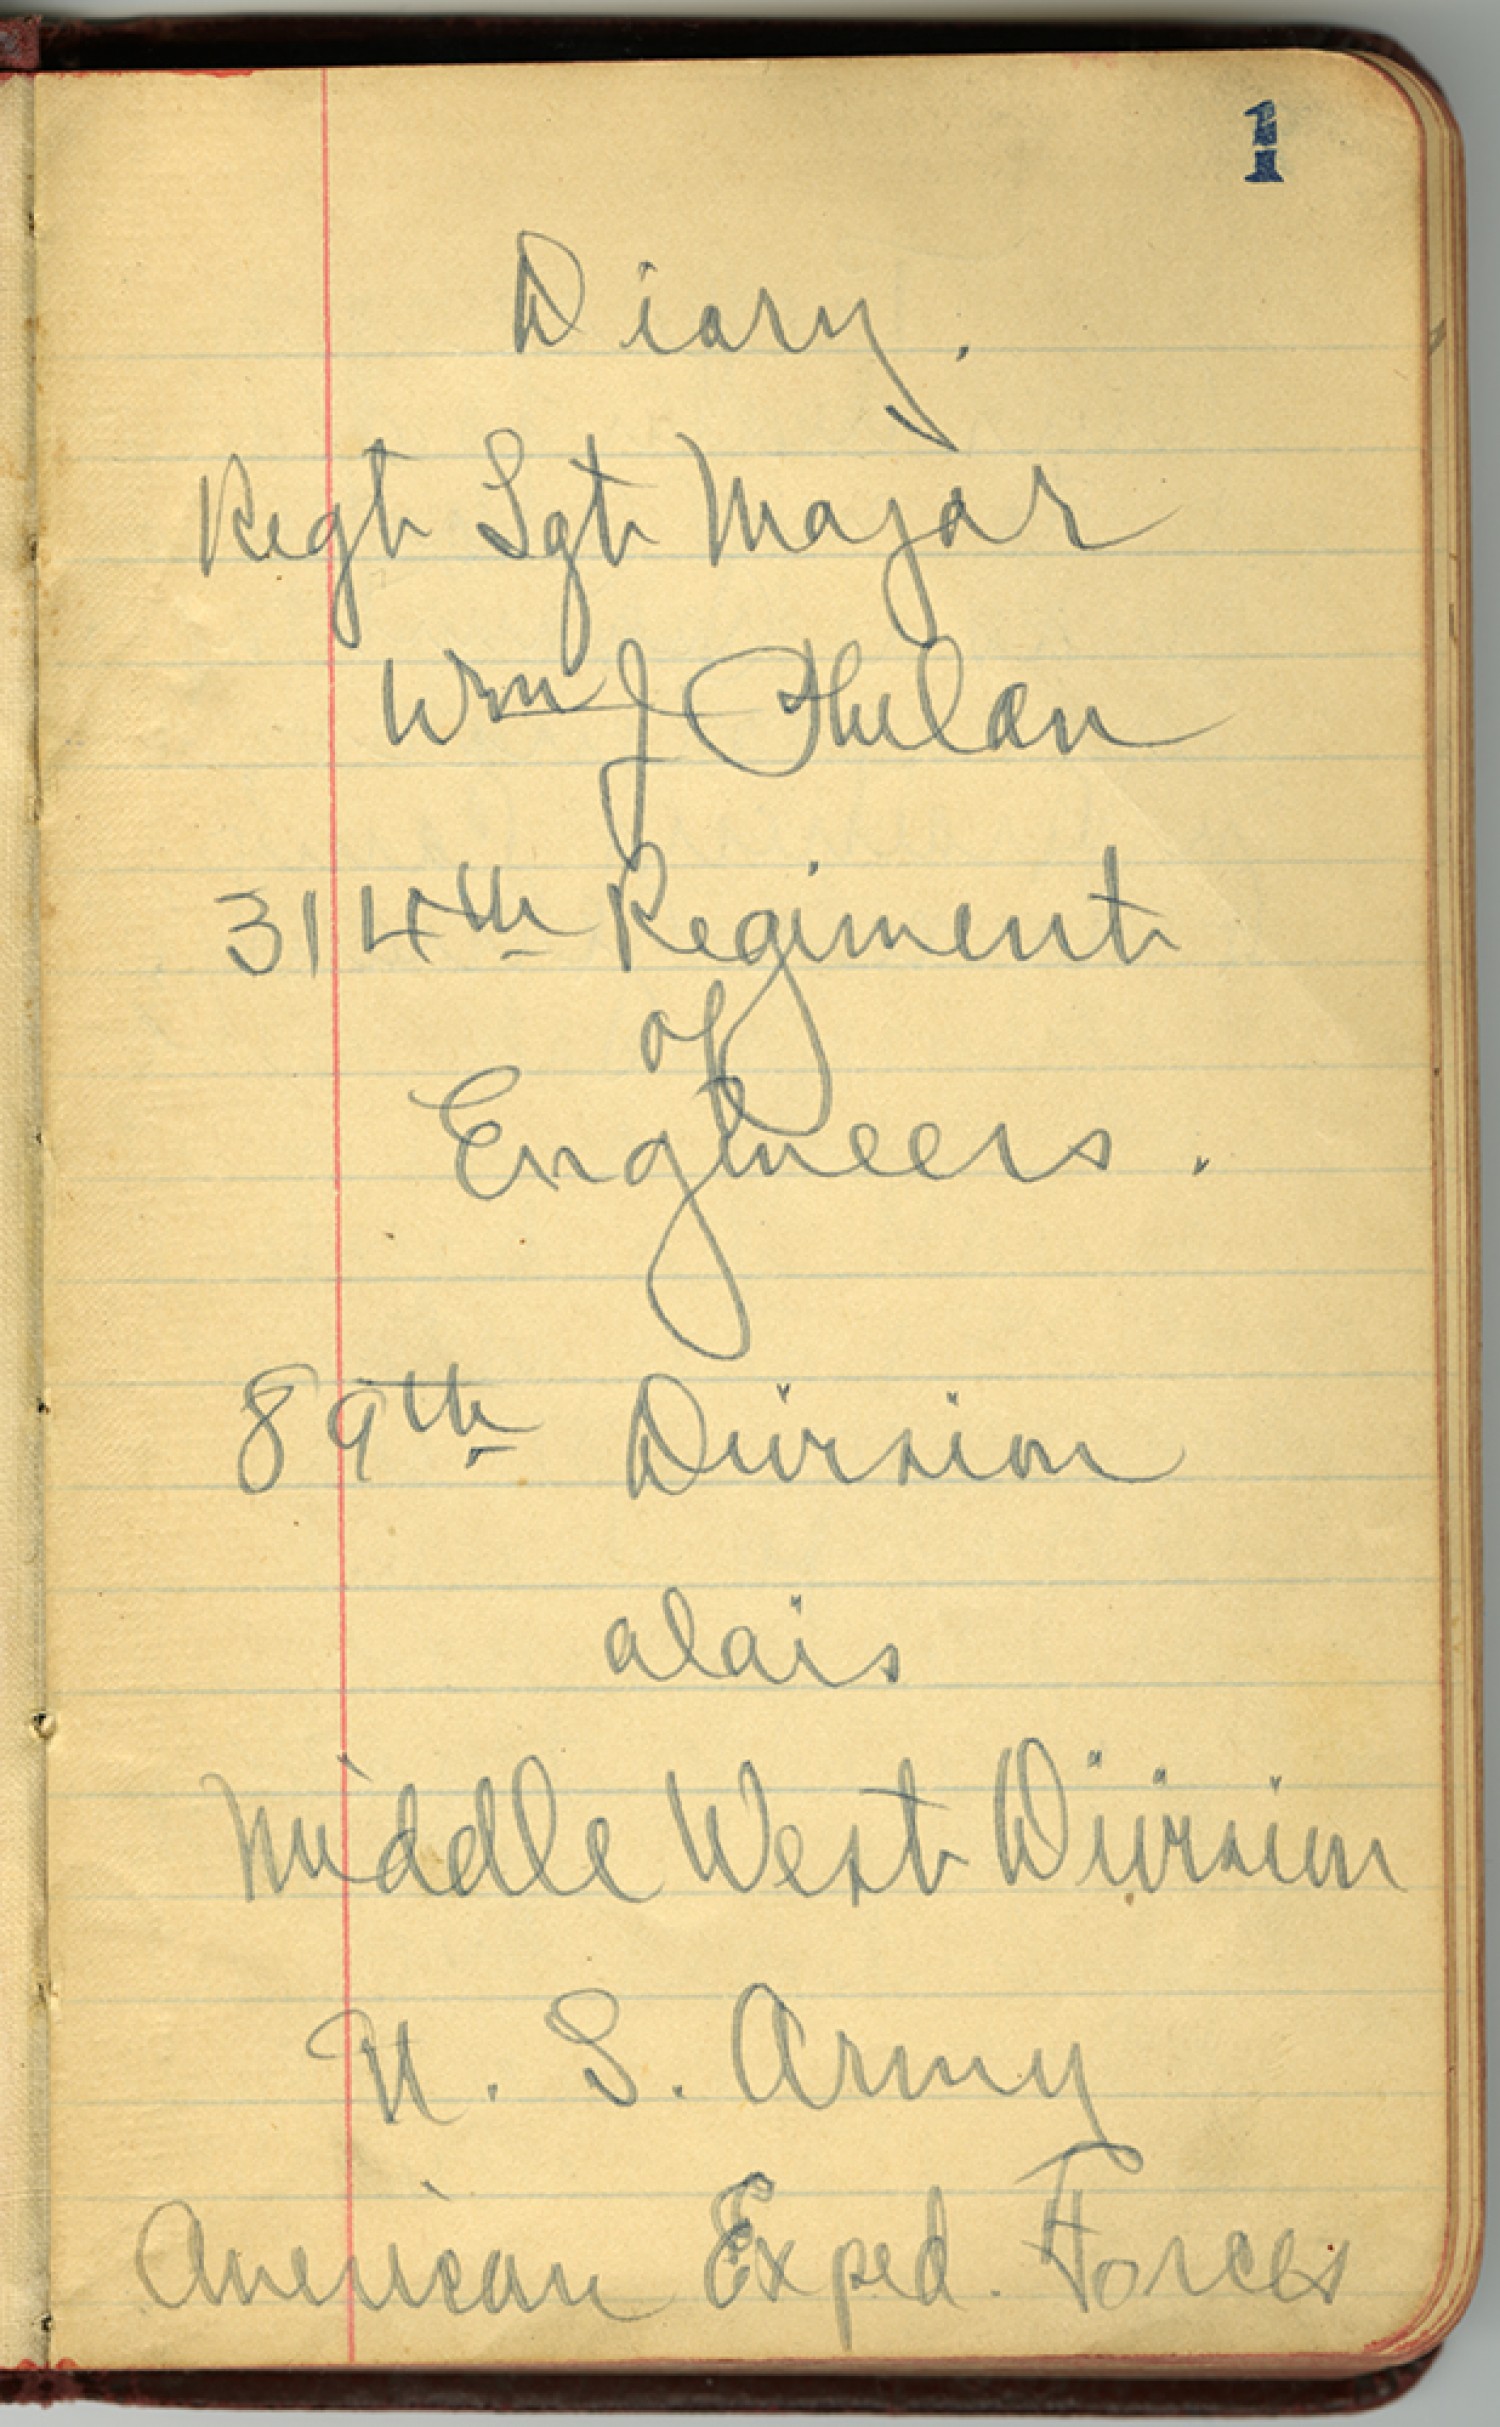 1
Diary.
Regt Sgt Major
Wm J Phelan
314th Regiment
of
Engineers.
89th Division
alais
Middle West Division
U. S. Army
American Exped. Forces